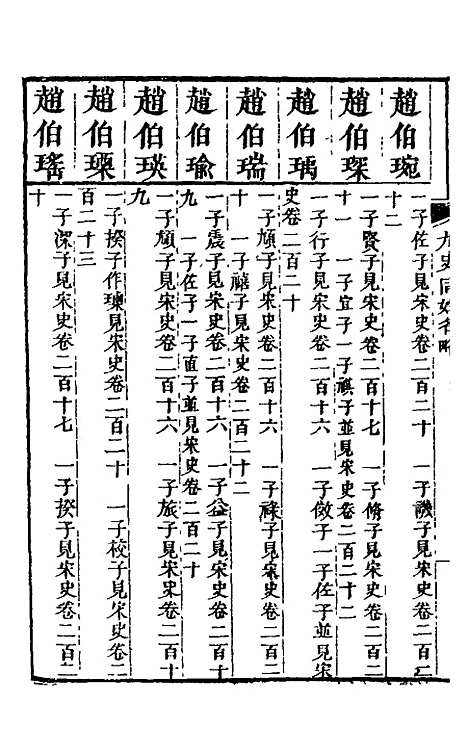 九史同姓名略
趙伯琬 一子佐子見宋史卷二百二十 一子譏子見宋史卷二百二
十二
趙伯琛 一子賢子見宋史卷二百十七 一子脩子見宋史卷二百二
十一 一子宜子一子祺子並見宋史卷二百二十二
趙伯瑀 一子行子見宋史卷二百十六 一子儆子一子佐子並見宋
史卷二百二十
趙伯瑞 一子頎子見宋史卷二百十六 一子祿子見宋史卷二百二
十 一子禧子見宋史卷二百二十二
趙伯瑜 一子震子見宋史卷二百十六 一子益子見宋史卷二百十
九 一子佐子一子直子並見宋史卷二百二十
趙伯瑛 一子頎子見宋史卷二百十六 一子旅子見宋史卷二百十
九
趙伯瑮 一子揆子作見宋史卷二百二十 一子校子見宋史卷二
百二十三
趙伯瑤 一子深子見宋史卷二百十七 一子揆子見宋史卷二百二
十